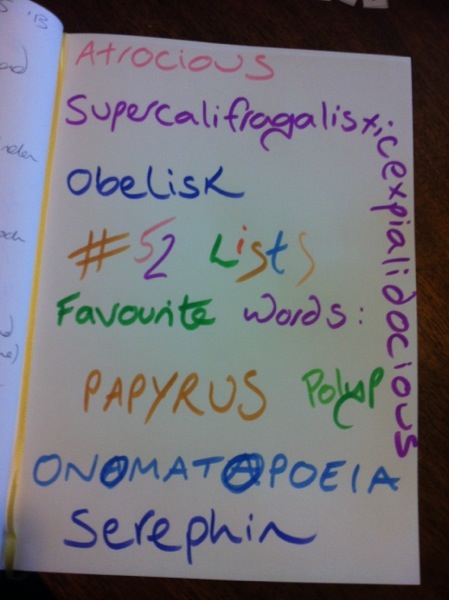 Atrocious
Supercalifragalisticexpialidocious
Obelisk
#52 Lists
Favourite Words:
PAPYRUS Polyp
ONOMATAPOEIA
Serephin